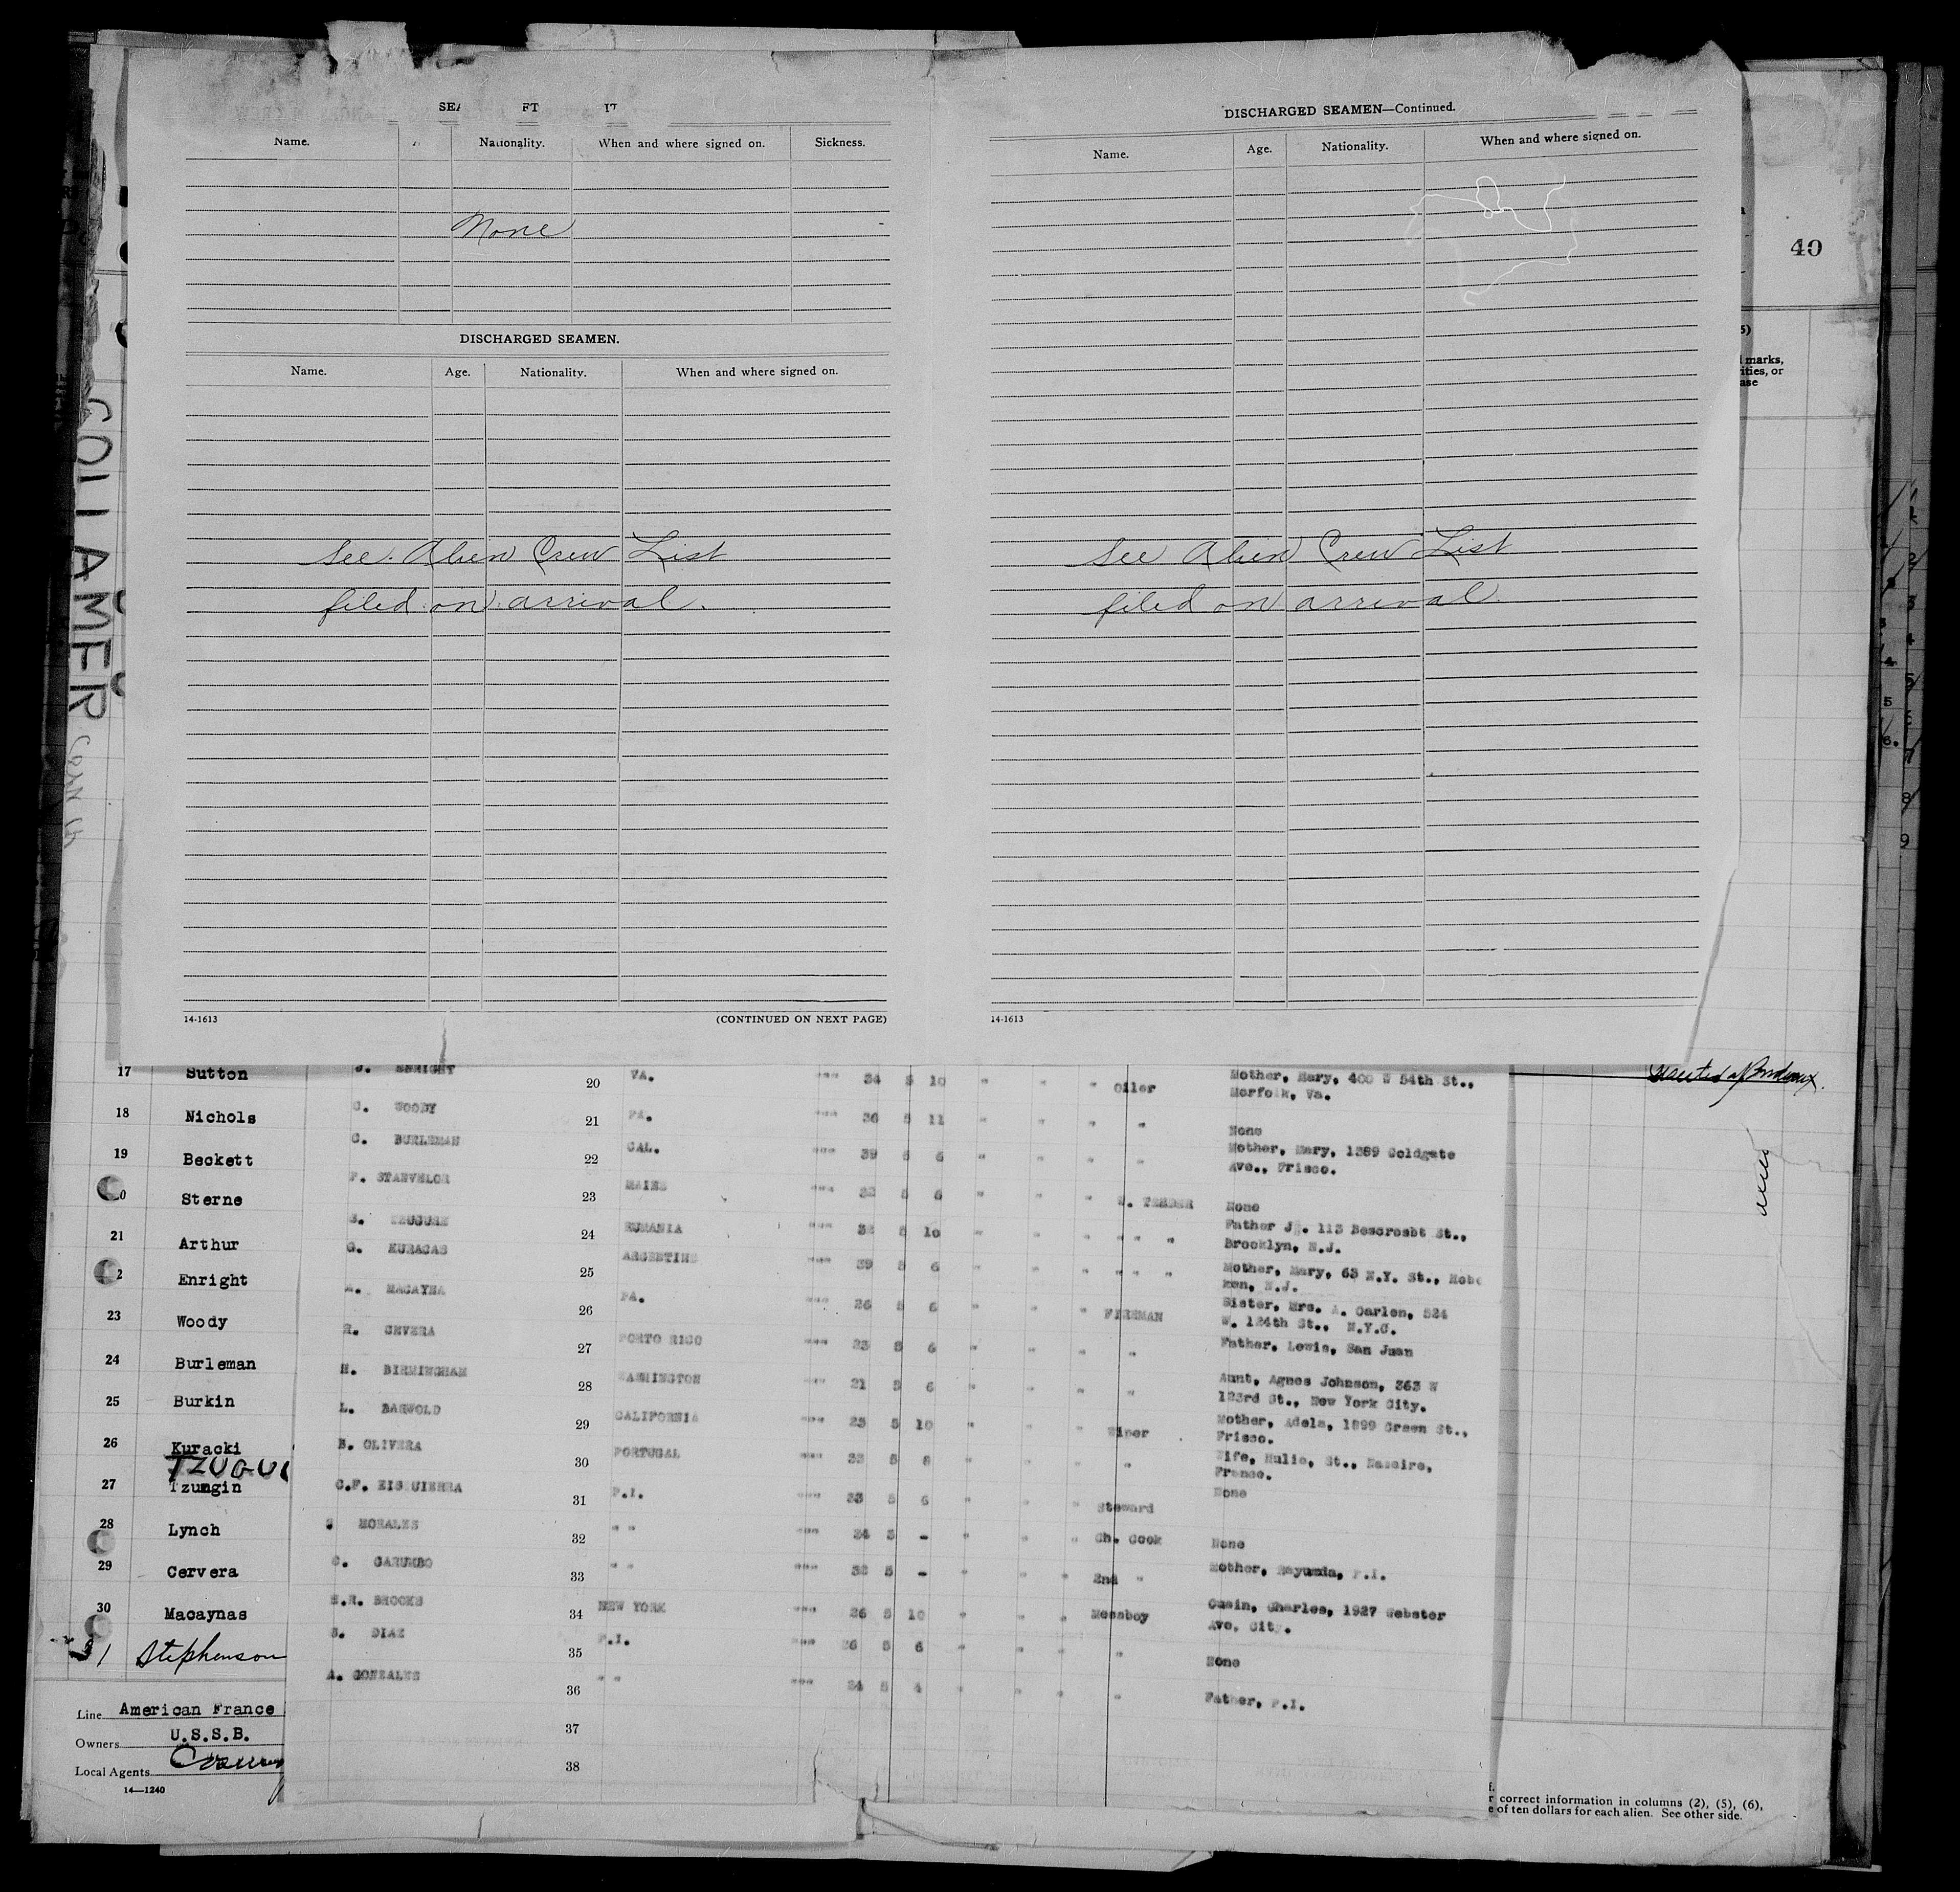 DISCHARGED SEAMEN—Continued.
Name. Nationality. When and where signed on. Sickness.
Name. Age. Nationality. When and where signed on.
None
40
DISCHARGED SEAMEN.
Name. Age. Nationality. When and where signed on.
marks,
or
COLLAMER
See Alien Crew List
filed on arrival.
See Alien Crew List
filed on arrival.
14-1613 (CONTINUED ON NEXT PAGE)
14-1613
17 Sutton
18 Nichols
19 Beckett
Sterne
21 Arthur
Enright
23 Woody
24 Burleman
25 Burkin
26 Kuracki
27 Tzumgin
28 Lynch
29 Cervera
30 Macaynas
31 Stephenson
Line American France
Owners U.S.S.B.
Local Agents
14—1240
J. ENRIGHT 20 VA. 34 5 10 " " " Oiler Mother, Mary, 400 W 54th St.,
Norfolk, Va.
C. WOODY 21 PA. 36 5 11 " " " " None
C. BURLEMAN 22 CAL. 39 5 6 " " " " Mother, Mary, 1389 Goldgate
Ave., Frisco.
23 MAINE 32 5 6 " " " W. TENDER None
24 RUMANIA 32 5 10 " " " " " " Father
Brooklyn, N.J.
G. KURACAS 25 ARGENTINE 39 5 6 " " " " " " Mother, Mary, 63 N.Y. St.,
ken, N.J.
26 PA. 26 5 6 " " " FIREMAN Sister, Mrs. A. Carlen, 524
W. 124th St., N.Y.C.
R. CEVERA 27 PORTO RICO 23 5 6 " " " " Father, Lewis, San Juan
H. BIRMINGHAM 28 WASHINGTON 21 5 6 " " " " Aunt, Agnes Johnson, 363 W
123rd St., New York City.
L. BARWOLD 29 CALIFORNIA 25 5 10 " " " Wiper Mother, Adela, 1899 Green St.,
Frisco.
B. OLIVERA 30 PORTUGAL 33 5 8 " " " " Wife, St.,
France.
C.F. 31 P.I. 33 5 6 " " " Steward None
MORALES 32 " " 34 5 - " " " Ch. Cook None
C. CARUMBO 33 " " 32 5 - " " " 2nd " Mother, P.I.
BROOKS 34 NEW YORK 26 5 10 " " " Messboy Cusin, Charles, 1927 Webster
Ave, City.
S. DIAZ 35 P.I. 26 5 6 " " " " None
A. GONZALES 36 " " 24 5 4 " " " " Father, P.I.
37
38
correct information in columns (2), (5), (6),
of ten dollars for each alien. See other side.